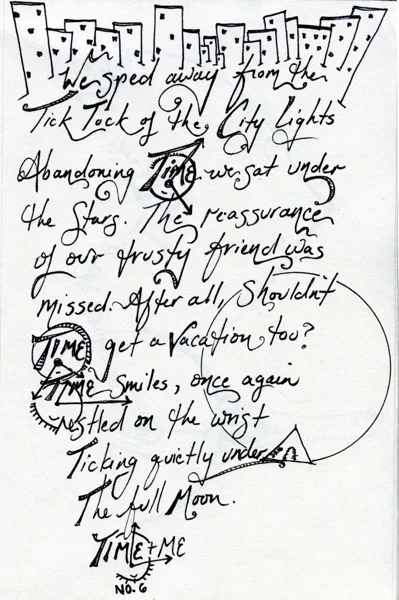 We sped away from the
Tick Tock of the City Lights
Abandoning TIME we sat under
the Stars. The reassurance
of our trusty friend was
missed. After all, Shouldn't
TIME get a Vacation too?
TIME Smiles, once again
nestled on the wrist
Ticking quietly under
The full Moon.
TIME + ME
NO. 6